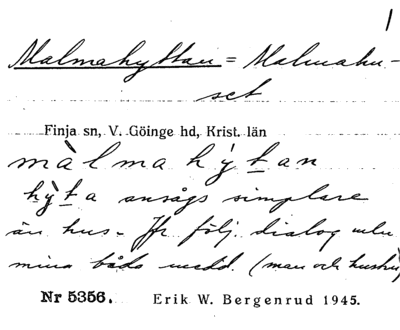 1
Malmahyttan = Malmahu-
set
Finja sn, V. Göinge hd, Krist. län
màlma hýtan
hỳta ansågs simplare
än hus. Jfr följ. dialog mellan
mina båda medd. (man och hustru)
Nr 5356. Erik W. Bergenrud 1945.